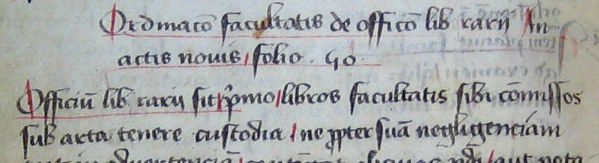 Ordinacō facultatis de officō lib rarij In
actis novis folio . 40
Officiū lib rarij sit p̄mo libros facultatis sibi com̄issos
sub arta tenere custodia ne ꝓpter suā negligenciam